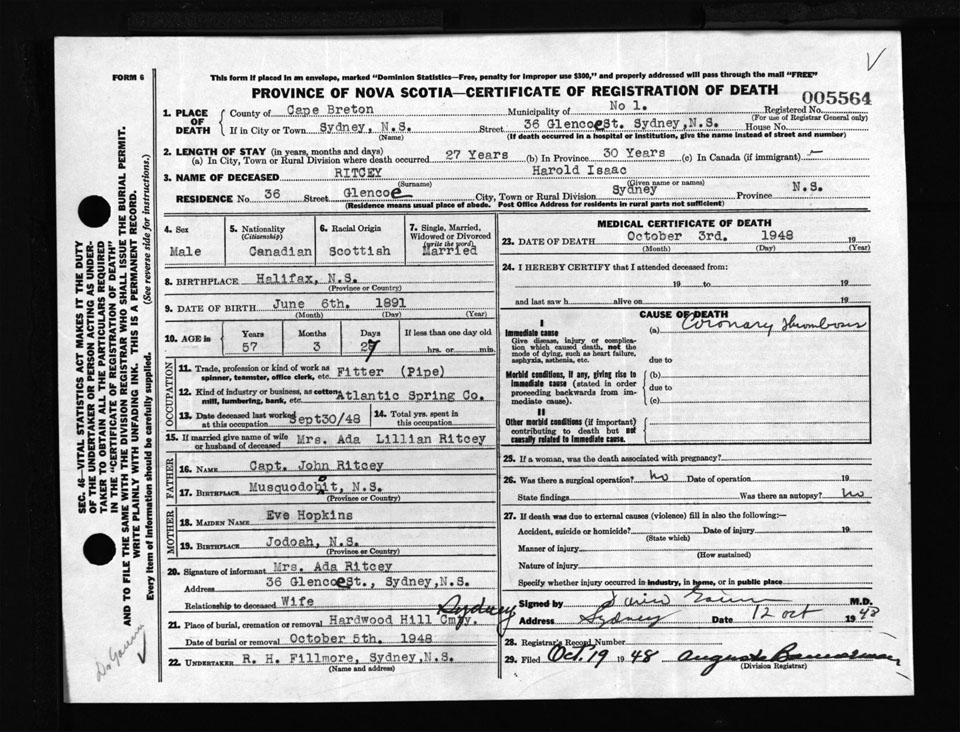 FORM 6
This form if placed in an envelope, marked "Dominion Statistics—Free, penalty for improper use $300," and properly addressed will pass through the mail "FREE"
PROVINCE OF NOVA SCOTIA—CERTIFICATE OF REGISTRATION OF DEATH
005564
1. PLACE OF DEATH County of Cape Breton Municipality of No 1. Registered No. (For use of Registrar General only)
If in City or Town Sydney, N.S. (Name) Street 36 Glencoe St. Sydney, N.S. House No.
(If death occurred in a hospital or institution, give the name instead of street and number)
2. LENGTH OF STAY (in years, months and days)
(a) In City, Town or Rural Division where death occurred 27 Years (b) In Province 30 Years (c) In Canada (if immigrant) —
3. NAME OF DECEASED RITCEY (Surname) Harold Isaac (Given name or names)
RESIDENCE No. 36 Street Glencoe City, Town or Rural Division Sydney Province N.S.
(Residence means usual place of abode. Post Office Address for residents in rural parts not sufficient)
4. Sex Male
5. Nationality (Citizenship) Canadian
6. Racial Origin Scottish
7. Single, Married, Widowed or Divorced (write the word) Married
8. BIRTHPLACE Halifax, N.S. (Province or Country)
9. DATE OF BIRTH June 6th. 1891 (Month) (Day) (Year)
10. AGE in Years 57 Months 3 Days 27 If less than one day old hrs. or min.
OCCUPATION
11. Trade, profession or kind of work as spinner, teamster, office clerk, etc. Fitter (Pipe)
12. Kind of industry or business, as cotton mill, lumbering, bank, etc. Atlantic Spring Co.
13. Date deceased last worked at this occupation Sept30/48
14. Total yrs. spent in this occupation
15. If married give name of wife or husband of deceased Mrs. Ada Lillian Ritcey
FATHER
16. NAME Capt. John Ritcey
17. BIRTHPLACE Musquodobit, N.S. (Province or Country)
MOTHER
18. MAIDEN NAME Eve Hopkins
19. BIRTHPLACE Jodoah, N.S. (Province or Country)
20. Signature of informant Mrs. Ada Ritcey
Address 36 Glencoe St., Sydney, N.S.
Relationship to deceased Wife
21. Place of burial, cremation or removal Hardwood Hill Cmy. Sydney
Date of burial or removal October 5th. 1948
22. UNDERTAKER R. H. Fillmore, Sydney, N.S. (Name and address)
MEDICAL CERTIFICATE OF DEATH
23. DATE OF DEATH October 3rd. 1948 19 (Month) (Day) (Year)
24. I HEREBY CERTIFY that I attended deceased from:
19 to 19
and last saw h alive on 19
CAUSE OF DEATH
I
Immediate cause (a) Coronary thrombosis
Give disease, injury or complication which caused death, not the mode of dying, such as heart failure, asphyxia, asthenia, etc.
due to
Morbid conditions, if any, giving rise to immediate cause (stated in order proceeding backwards from immediate cause).
(b)
due to
(c)
II
Other morbid conditions (if important) contributing to death but not causally related to immediate cause.
25. If a woman, was the death associated with pregnancy?
26. Was there a surgical operation? No Date of operation 19
State findings Was there autopsy? No
27. If death was due to external causes (violence) fill in also the following:—
Accident, suicide or homicide? (State which) Date of injury 19
Manner of injury (How sustained)
Nature of injury
Specify whether injury occurred in industry, in home, or in public place
Signed by M.D.
Address Sydney Date 12 Oct 1948
28. Registrar's Record Number
29. Filed Oct. 19 1948 Bannerman (Division Registrar)
SEC. 46—VITAL STATISTICS ACT MAKES IT THE DUTY
OF THE UNDERTAKER OR PERSON ACTING AS UNDER-
TAKER TO OBTAIN ALL THE PARTICULARS REQUIRED
IN THE "CERTIFICATE OF REGISTRATION OF DEATH"
AND TO FILE THE SAME WITH THE DIVISION REGISTRAR WHO SHALL ISSUE THE BURIAL PERMIT.
WRITE PLAINLY WITH UNFADING INK. THIS IS A PERMANENT RECORD.
Every item of information should be carefully supplied. (See reverse side for instructions.)